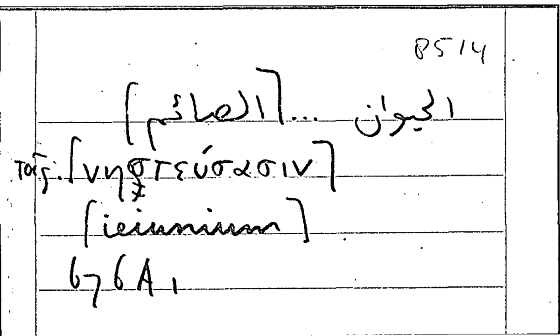 8514
الحيوان ... [الصائم]
τοῖς. [νηστεύσασιν]
[ieiunium]
676A,